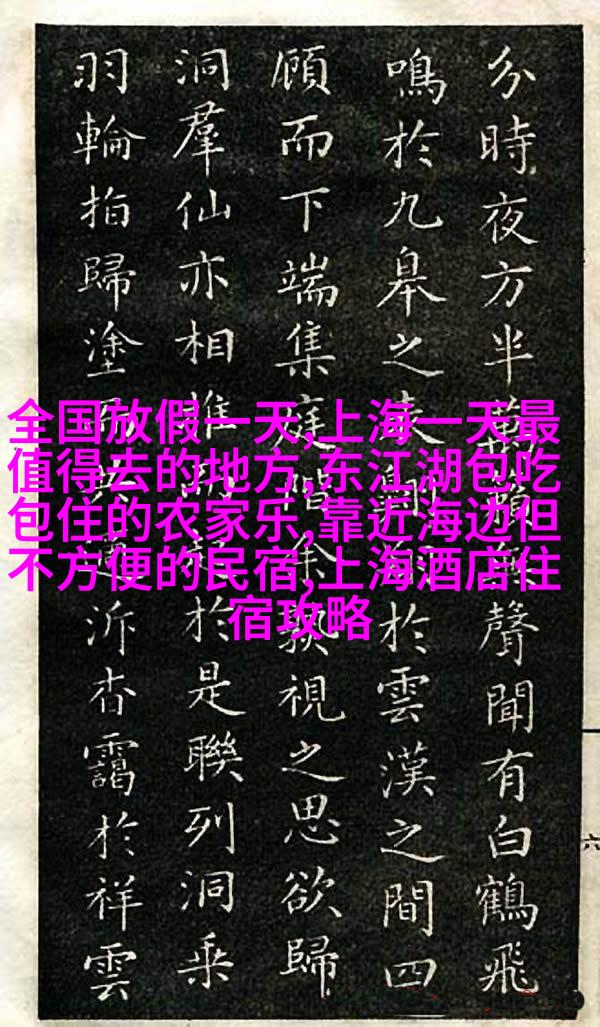 全国放假一天,上海一天最
值得去的地方,东江湖包吃
包住的农家乐,靠近海边但
不方便的民宿,上海酒店住
宿攻略
分時夜方半聲聞有白鶴飛
鳴於九皋之表於雲漢之間四
顧而下端集庭階視之思欲歸
洞羣仙亦相推於是聯列洞乘
羽輪拍歸塗泝杳靄於祥雲
六